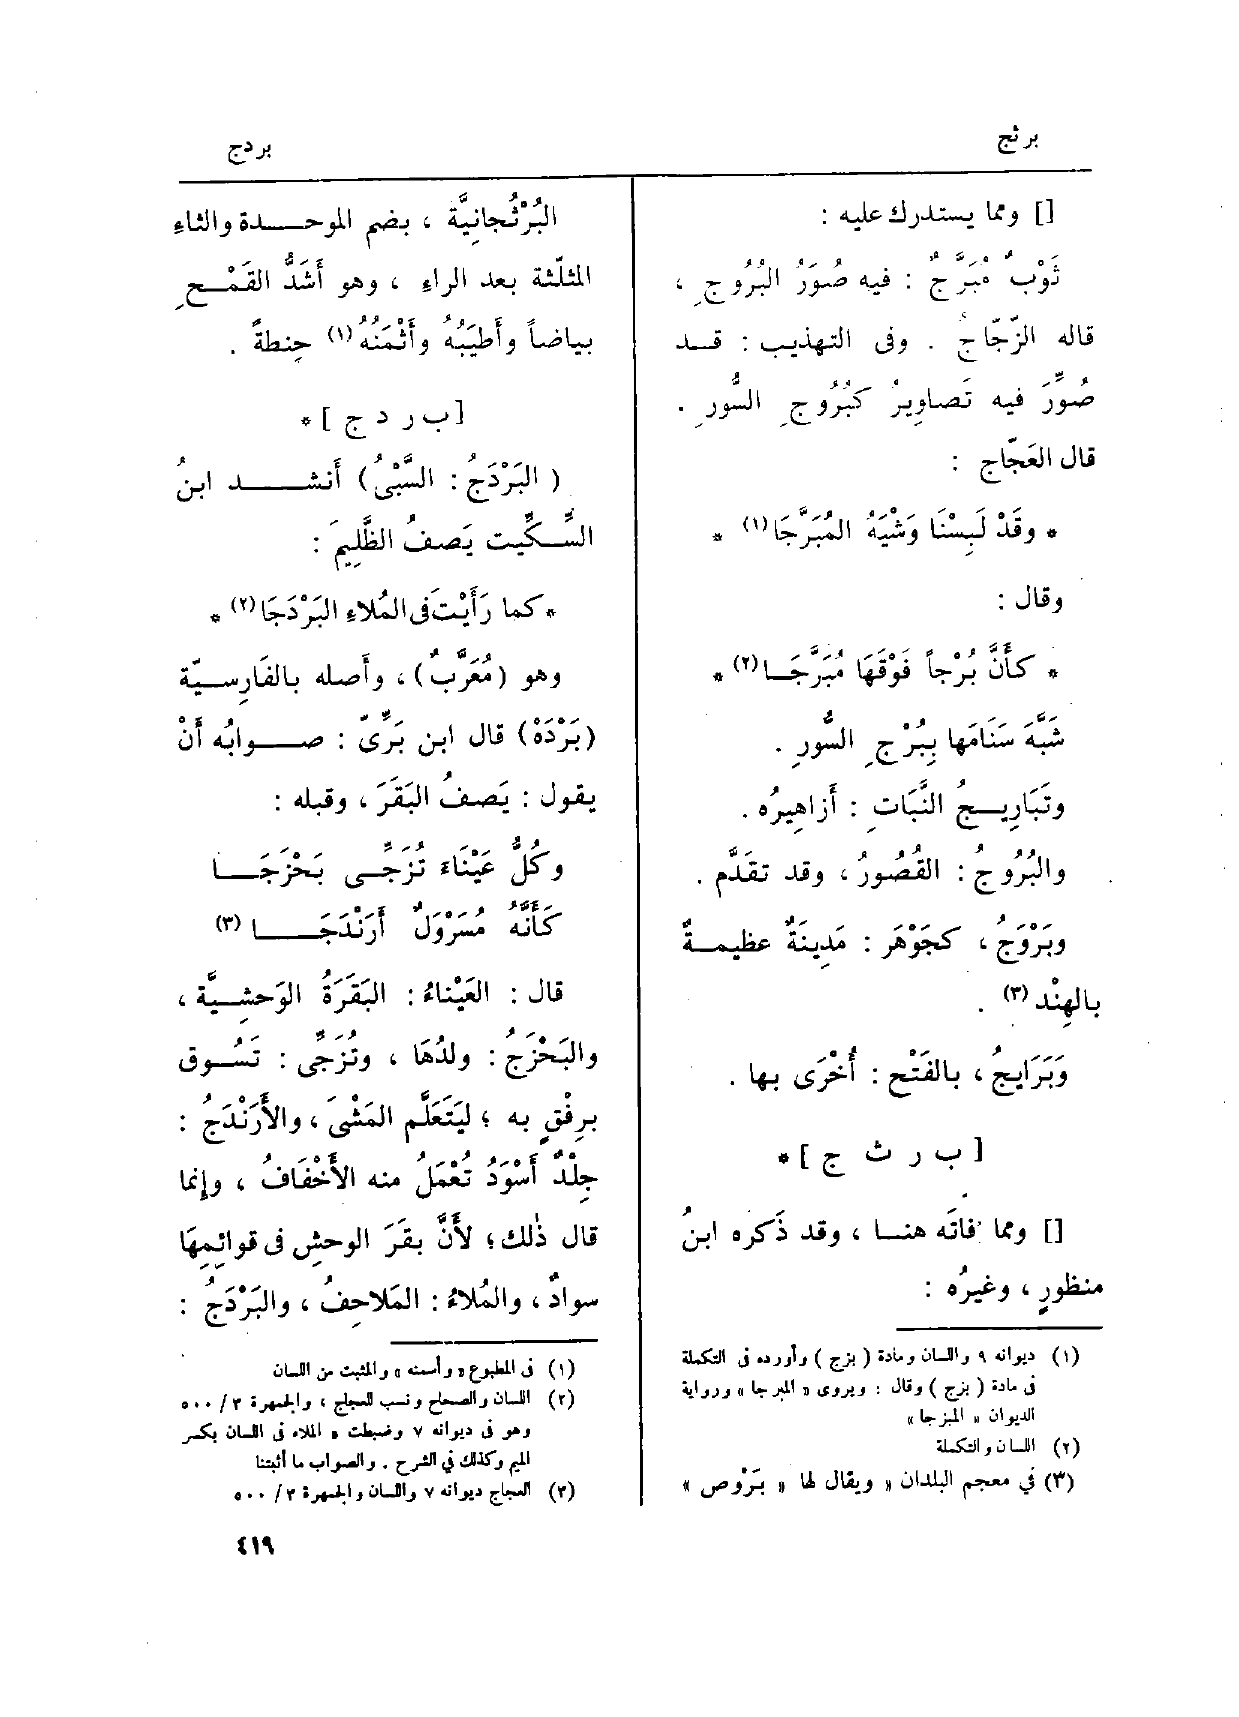 برثج
بردج
[] ومما يستدرك عليه :
ثَوْبٌ مُبَرَّجٌ : فيه صُوَرُ البُرُوجِ ،
قاله الزّجّاجُ . وفى التهذيب : قــد
صُوِّرَ فيه تَصاوِيرُ كَبُرُوجِ السُّورِ .
قال العَجّاج :
* وقَدْ لَبِسْنَا وَشْيَهُ المُبَرَّجَا (١) *
وقال :
* كأَنَّ بُرْجاً فَوْقَهَا مُبَرَّجَــا (٢) *
شَبَّهَ سَنَامَها بِبُرْجِ السُّورِ .
وتَبَارِيــجُ النَّبَاتِ : أَزاهِيرُه .
والبُرُوجُ : القُصُورُ ، وقد تقدَّم .
وبَرْوَجُ ، كجَوْهَر : مَدِينَةٌ عظيمــةٌ
بالهِنْد (٣) .
وَبَرَايِجُ ، بالفَتْح : أُخْرَى بها .
[ ب ر ث ج ] *
[] ومما فاتَه هنــا ، وقد ذَكره ابنُ
منظورٍ ، وغيرُه :
(١) ديوانه ٩ واللسان ومادة ( بزج ) وأورده فى التكملة
فى مادة ( بزج ) وقال : ويروى « المبرجا » ورواية
الديوان « المبزجا »
(٢) اللسان والتكملة
(٣) في معجم البلدان « ويقال لها « بَرْوص »
البُرْثُجانِيَّة ، بضم الموحــدة والثاءِ
المثلّثة بعد الراءِ ، وهو أَشَدُّ القَمْــحِ
بياضاً وأَطيَبُهُ وأَثْمَنُهُ (١) حِنطةً .
[ ب ر د ج ] *
( البَرْدَجُ : السَّبْىُ ) أَنشــد ابنُ
السِّــكِّيت يَصفُ الظَّلِيمَ :
* كما رَأَيْتَ فى المُلاءِ البَرْدَجَا (٢) *
وهو (مُعَرَّبٌ) ، وأَصله بالفَارِسـيّة
(بَرْدَهْ) قال ابن بَرِّىّ : صــوابُه أَنْ
يقول : يَصفُ البَقَرَ ، وقبله :
وكُلُّ عَيْنَاءَ تُزَجِّــى بَحْزَجَــا
كَأَنَّهُ مُسَرْوَلٌ أَرَنْدَجَــا (٣)
قال : العَيْناءُ : البَقَرَةُ الوَحشِـيَّة ،
والبَحْزَجُ : ولدُهَا ، وتُزَجِّى : تَسُـوق
برِفْقٍ به ؛ ليَتَعَلَّم المَشْىَ ، والأَرَنْدَجُ :
جِلْدٌ أَسْوَدُ تُعْمَلُ منه الأَخْفَافُ ، وإنما
قال ذٰلك ؛ لأَنَّ بقَرَ الوحشِ فى قوائِمِهَا
سوادٌ ، والمُلاءُ : المَلاحِفُ ، والبَرْدَجُ :
(١) فى المطبوع « وأسمنه » والمثبت من اللسان
(٢) اللسان والصحاح ونسب للعجاج ، والجمهرة ٣ / ٥٠٠
وهو فى ديوانه ٧ وضبطت « الملاء فى اللسان بكسر
الميم وكذلك في الشرح . والصواب ما أثبتنا
(٣) العجاج ديوانه ٧ واللسان والجمهرة ٣ / ٥٠٠
٤١٩